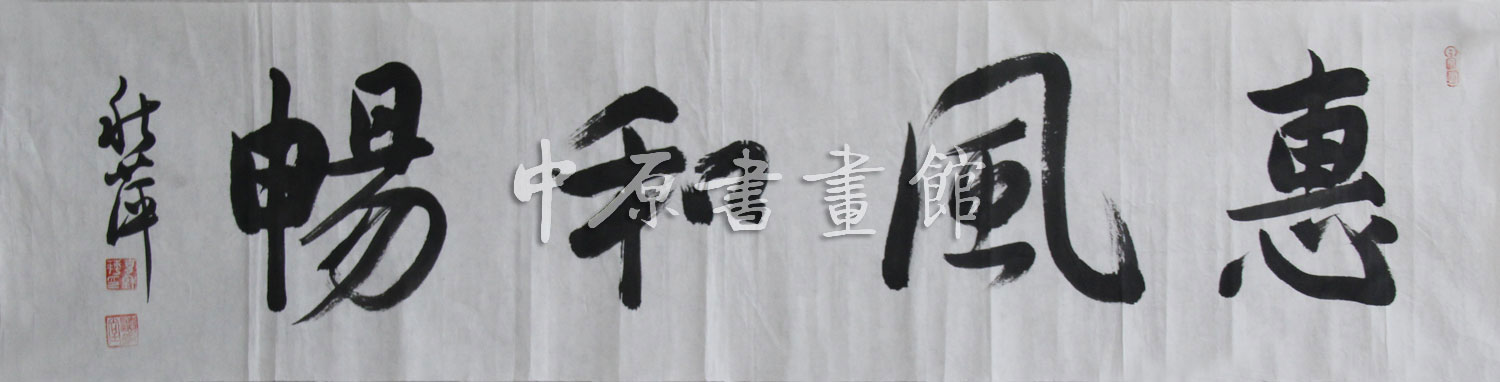 惠風和暢
秋萍
中原書畫館